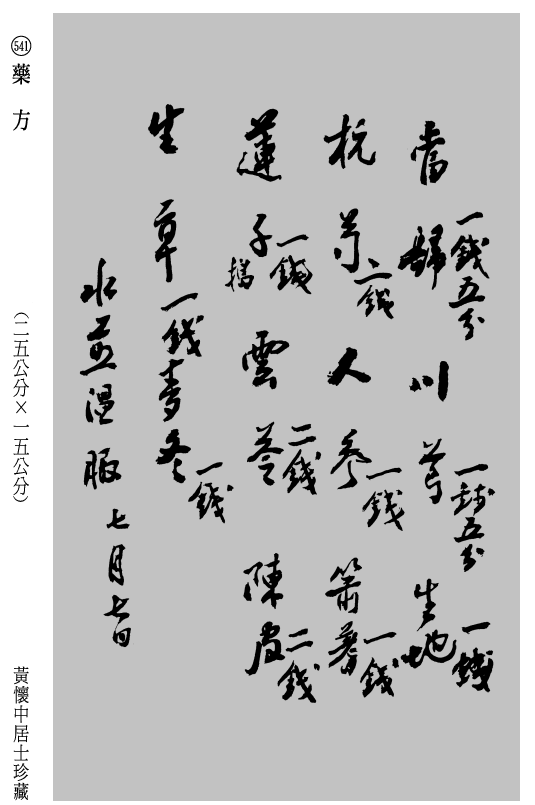 當歸一錢五分川芎一錢五分生地一錢
杭芍二錢人參一錢蕭薯一錢
蓮子一錢搗雲苓二錢陳皮二錢
生草一錢麥冬一錢
水煎溫服七月七日
541 藥方
(二五公分×一五公分)
黃懷中居士珍藏